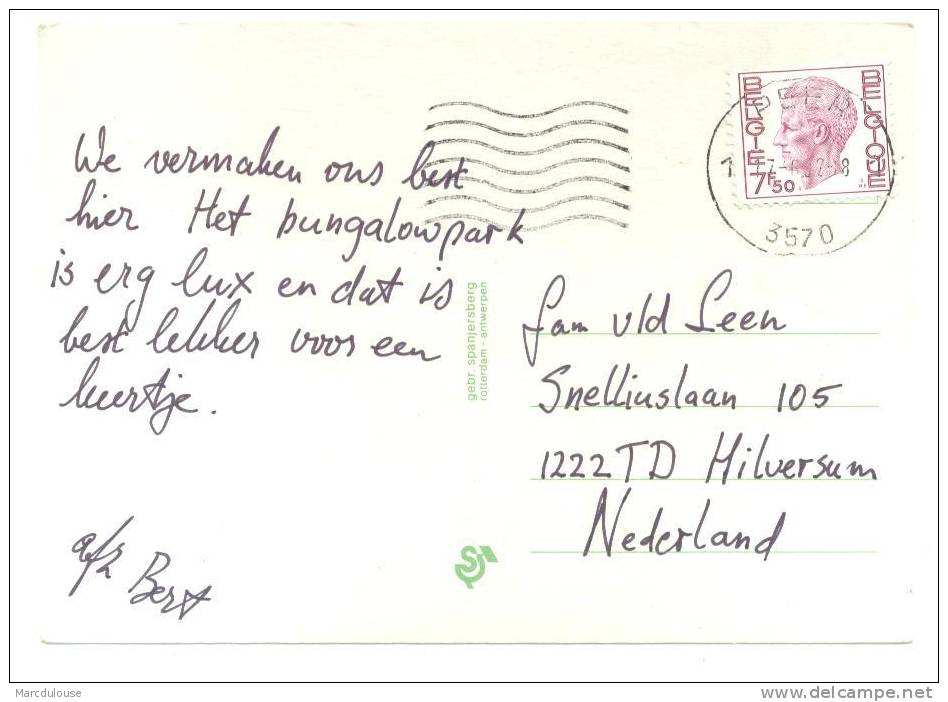 We vermaken ons best
hier Het bungalowpark
is erg lux en dat is
best lekker voor een
keertje.
Bert
gebr. spanjersberg
rotterdam - antwerpen
BELGIE
BELGIQUE
7F50
PEER
3570
Fam v/d Leen
Snelliuslaan 105
1222TD Hilversum
Nederland
Marcdulouse
www.delcampe.net